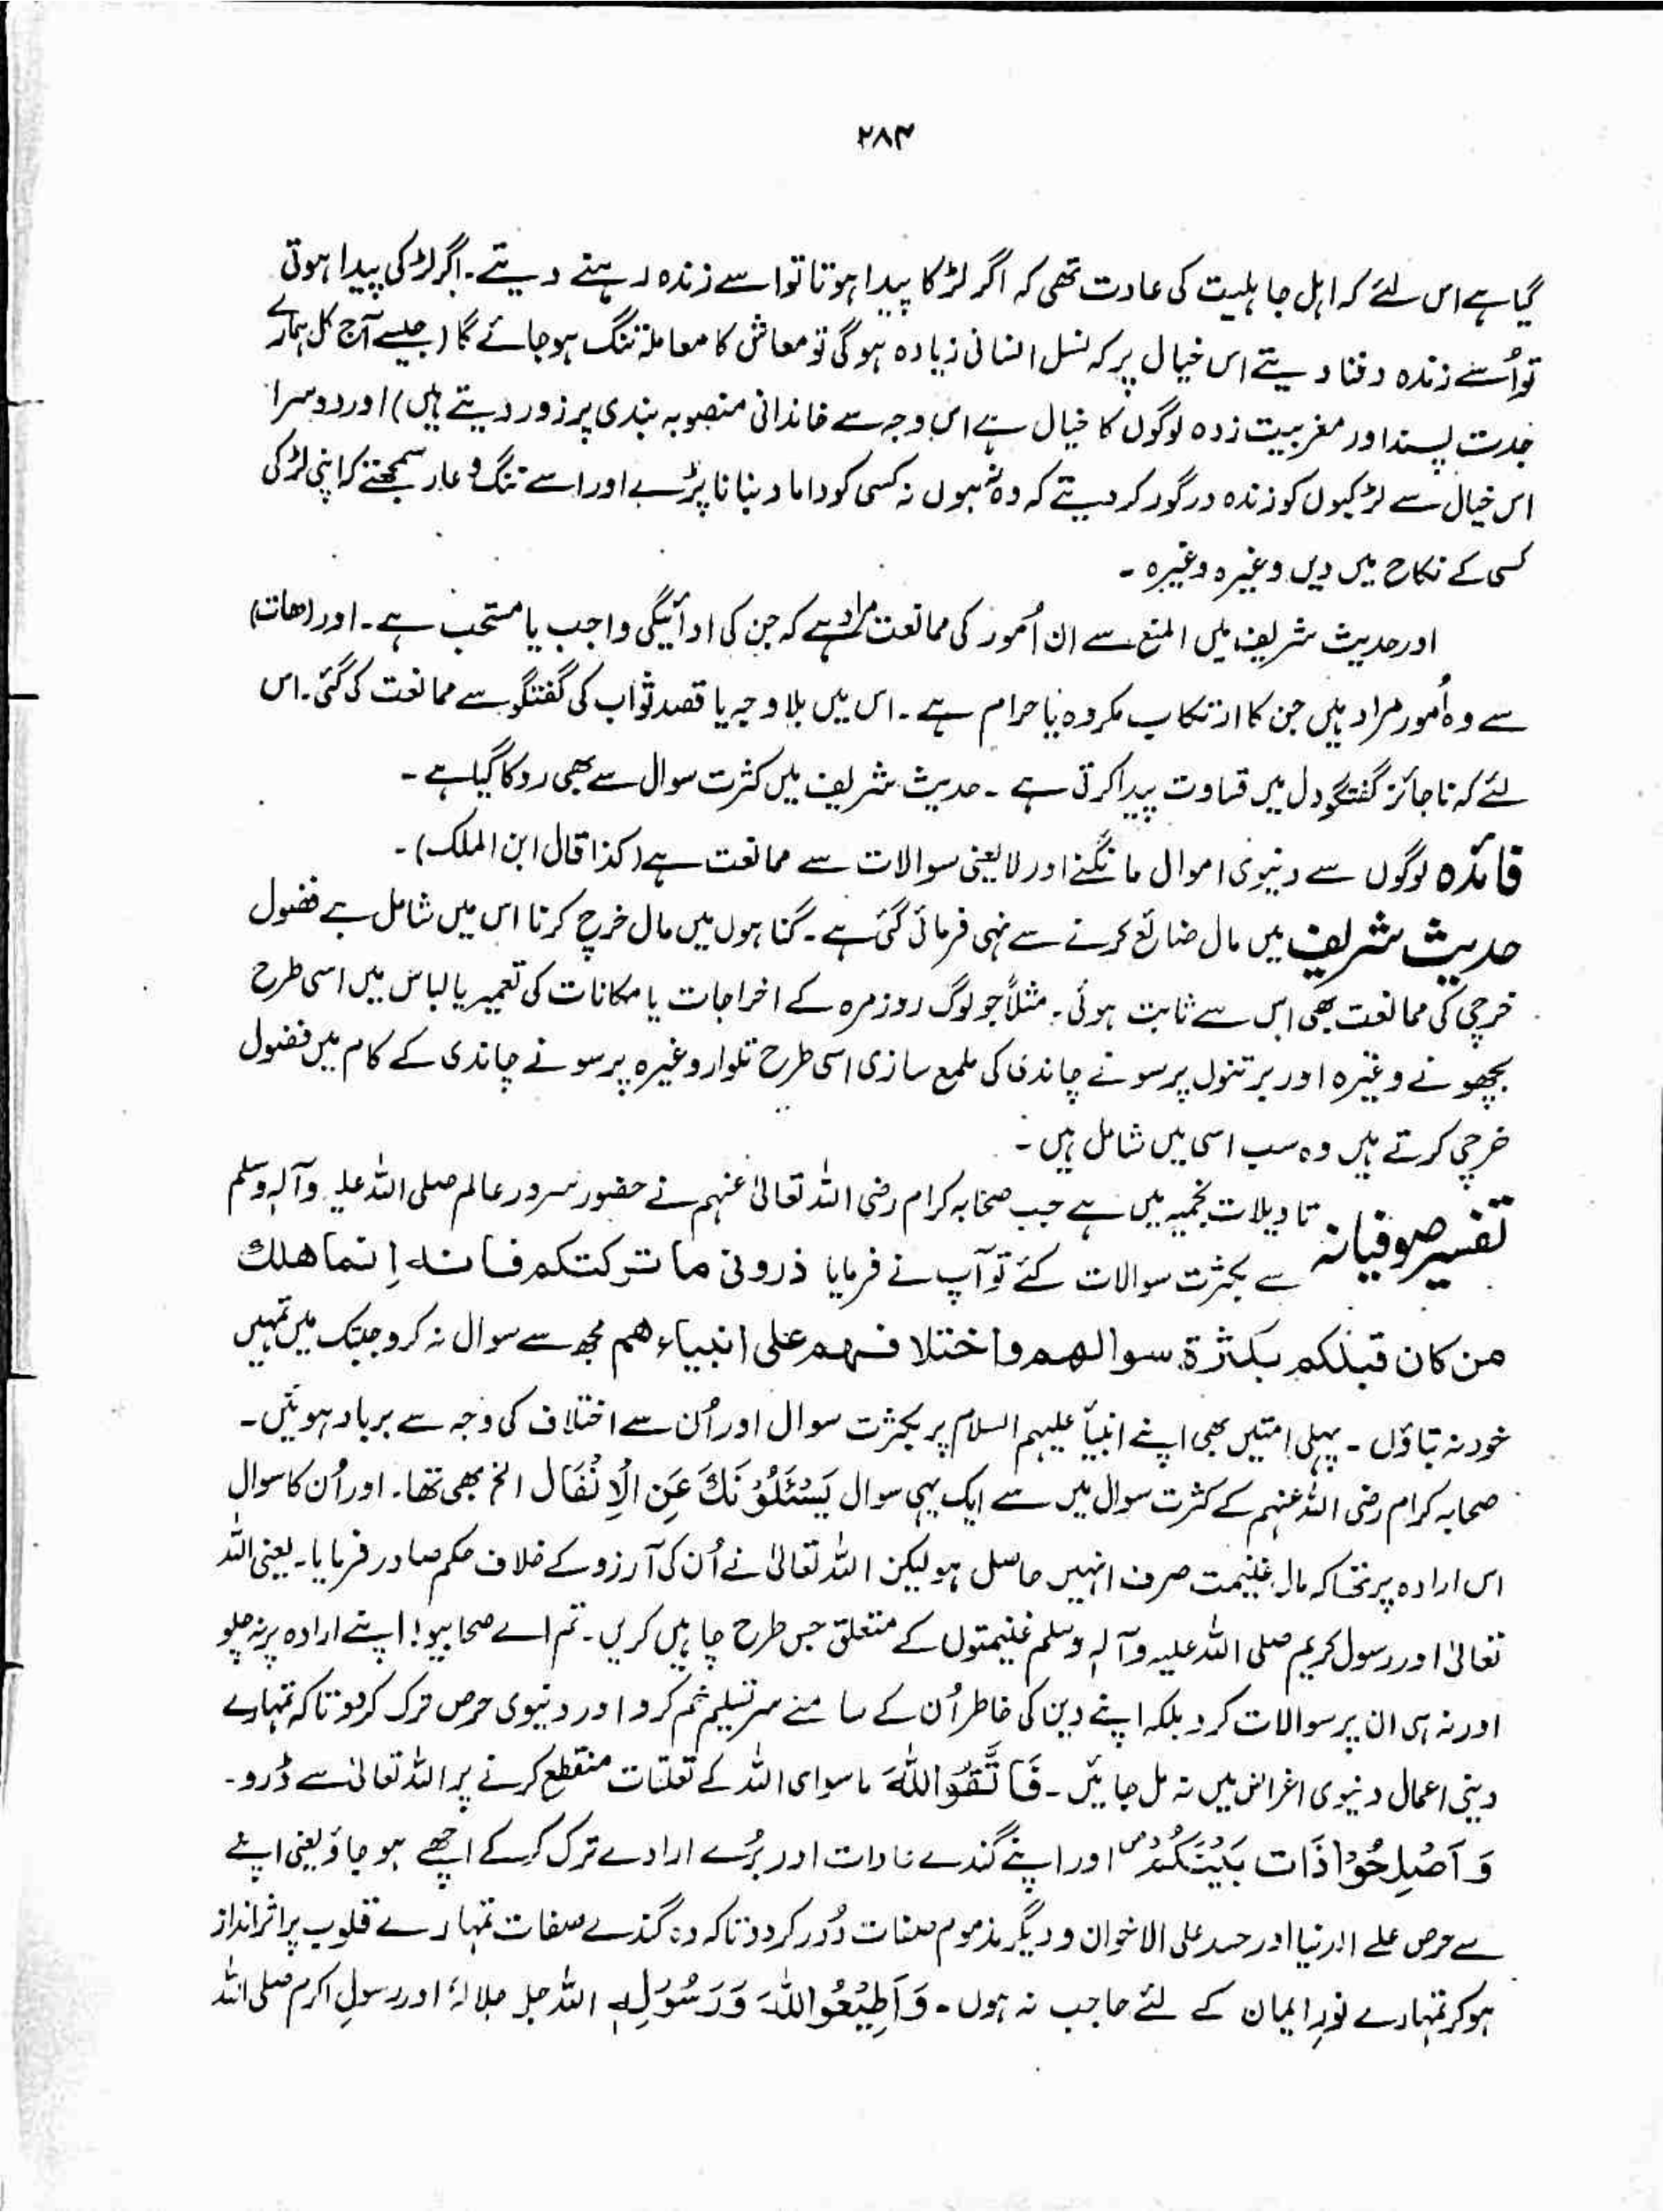 ۲۸۴
گیا ہے اس لئے کہ اہل جاہلیت کی عادت تھی کہ اگر لڑکا پیدا ہوتا تو اسے زندہ رہنے دیتے۔ اگر لڑکی پیدا ہوتی
تو اُسے زندہ دفنا دیتے اس خیال پر کہ نسل انسانی زیادہ ہوگی تو معاش کا معاملہ تنگ ہو جائے گا (جیسے آج کل ہمارے
جدت پسند اور مغربیت زدہ لوگوں کا خیال ہے اس وجہ سے خاندانی منصوبہ بندی پر زور دیتے ہیں) اور دوسرا
اس خیال سے لڑکیوں کو زندہ درگور کر دیتے کہ وہ نہ ہوں نہ کسی کو داماد بنانا پڑے اور اسے ننگ و عار سمجھتے کہ اپنی لڑکی
کسی کے نکاح میں دیں وغیرہ وغیرہ ۔
اور حدیث شریف میں المنع سے ان اُمور کی ممانعت مراد ہے کہ جن کی ادائیگی واجب یا مستحب ہے۔ اور (ھات)
سے وہ اُمور مراد ہیں جن کا ارتکاب مکروہ یا حرام ہے ۔ اس میں بلا وجہ یا قصد ثواب کی گفتگو سے ممانعت کی گئی۔ اس
لئے کہ ناجائز گفتگو دل میں قساوت پیدا کرتی ہے ۔ حدیث شریف میں کثرت سوال سے بھی روکا گیا ہے ۔
فائدہ لوگوں سے دنیوی اموال مانگنے اور لایعنی سوالات سے ممانعت ہے (کذا قال ابن الملک) ۔
حدیث شریف میں مال ضائع کرنے سے نہی فرمائی گئی ہے۔ گناہوں میں مال خرچ کرنا اس میں شامل ہے فضول
خرچی کی ممانعت بھی اس سے ثابت ہوئی۔ مثلاً جو لوگ روزمرہ کے اخراجات یا مکانات کی تعمیر یا لباس میں اسی طرح
بچھونے وغیرہ اور برتنوں پر سونے چاندی کی ملمع سازی اسی طرح تلوار وغیرہ پر سونے چاندی کے کام میں فضول
خرچی کرتے ہیں وہ سب اسی میں شامل ہیں ۔
تفسیر صوفیانہ تاویلات نجمیہ میں ہے جب صحابہ کرام رضی اللہ تعالیٰ عنہم نے حضور سرور عالم صلی اللہ علیہ وآلہ وسلم
سے بکثرت سوالات کئے تو آپ نے فرمایا ذرونی ما ترکتکم فانہ انما ھلک
من کان قبلکم بکثرۃ سوالھم واختلافہم علی انبیاءھم مجھ سے سوال نہ کرو جبتک میں تمہیں
خود نہ بتاؤں ۔ پہلی امتیں بھی اپنے انبیاء علیہم السلام پر بکثرت سوال اور اُن سے اختلاف کی وجہ سے برباد ہوئیں۔
صحابہ کرام رضی اللہ عنہم کے کثرت سوال میں سے ایک یہی سوال یَسْئَلُوْنَکَ عَنِ الْاَنْفَال الخ بھی تھا۔ اور اُن کا سوال
اس ارادہ پر تھا کہ مال غنیمت صرف انہیں حاصل ہو لیکن اللہ تعالیٰ نے اُن کی آرزو کے خلاف حکم صادر فرمایا۔ یعنی اللہ
تعالیٰ اور رسول کریم صلی اللہ علیہ وآلہ وسلم غنیمتوں کے متعلق جس طرح چاہیں کریں۔ تم اے صحابیو! اپنے ارادہ پر نہ چلو
اور نہ ہی ان پر سوالات کرو بلکہ اپنے دین کی خاطر اُن کے سامنے سر تسلیم خم کرو اور دنیوی حرص ترک کر دو تاکہ تمہارے
دینی اعمال دنیوی اغراض میں نہ مل جائیں ۔ فَاتَّقُوا اللّٰہَ ماسوای اللہ کے تعلقات منقطع کرنے پر اللہ تعالیٰ سے ڈرو۔
وَ اَصْلِحُوْا ذَاتَ بَیْنِکُمْ ص اور اپنے گندے عادات اور بُرے ارادے ترک کرکے اچھے ہو جاؤ یعنی اپنے
سے حرص علے الدنیا اور حسد علی الاخوان و دیگر مذموم صفات دُور کر دو تاکہ وہ گندے صفات تمہارے قلوب پر اثر انداز
ہو کر تمہارے نورِ ایمان کے لئے حاجب نہ ہوں ۔ وَاَطِیْعُوا اللّٰہَ وَرَسُوْلِہٖ اللہ جل جلالہٗ اور رسولِ اکرم صلی اللہ